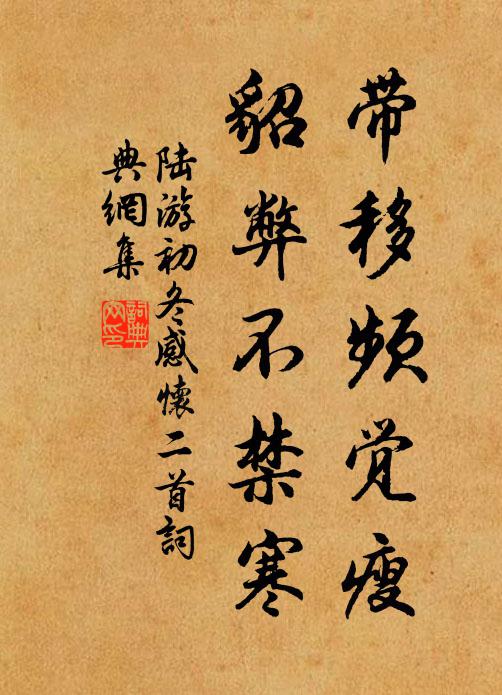 带移频觉瘦
貂弊不禁寒
陆游初冬感懷二首詞
典網集
詞典網印